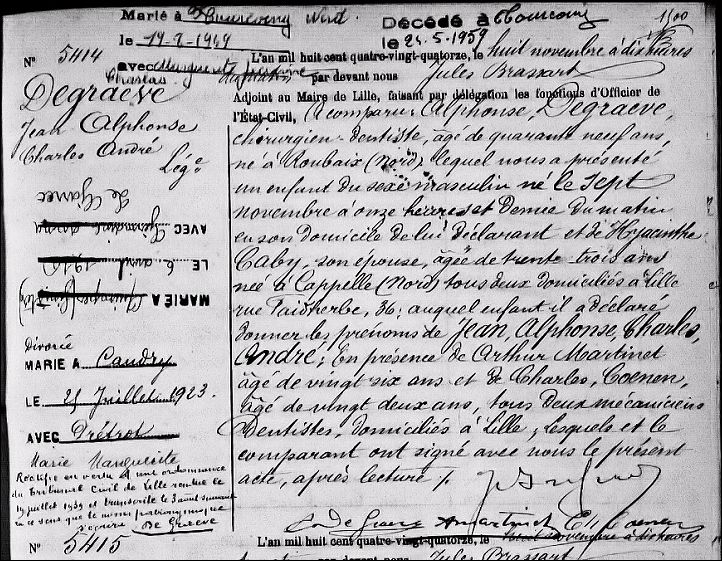 Marié à Tourcoing Nord
le 19-2-1949
avec Marguerite
Décédé à Tourcoing
le 24.5-1959
1500
N° 5414
Degraeve
Jean Alphonse
Charles André
Lég.e
MARIÉ A
LE 6 avril 1910
AVEC
Le Garrec
Divorcé
MARIE A Caudry
LE 21 Juillet 1923
AVEC Drétrot
Marie Marguerite
Rectifié en vertu d'une ordonnance
du Tribunal Civil de Lille rendue le
19 juillet 1939 et transcrite le 3 août suivant
en ce sens que le nom patronymique
s'écrira De Graeve
L'an mil huit cent quatre-vingt-quatorze, le huit novembre à dix heures
par devant nous Jules Brassart
Adjoint au Maire de Lille, faisant par délégation les fonctions d'Officier de
l'État-Civil, A comparu: Alphonse, Degraeve,
chirurgien-dentiste, âgé de quarante neuf ans,
né à Roubaix (Nord) lequel nous a présenté
un enfant du sexe masculin né le sept
novembre à onze heures et demie du matin
en son domicile de lui déclarant et de Hyacinthe
Caby, son épouse, âgée de trente-trois ans
née à Cappelle (Nord) tous deux domiciliés à Lille
rue Faidherbe, 36; auquel enfant il a déclaré
donner les prénoms de Jean, Alphonse, Charles,
André; En présence de Arthur Martinot
âgé de vingt six ans et de Charles, Coenen,
âgé de vingt deux ans, tous deux mécaniciens
Dentistes, domiciliés à Lille, lesquels et le
comparant ont signé avec nous le présent
acte, après lecture ./.
A Martinot Ch Coenen
N° 5415
L'an mil huit cent quatre-vingt-quatorze, le huit novembre à dix heures
par devant nous Jules Brassart